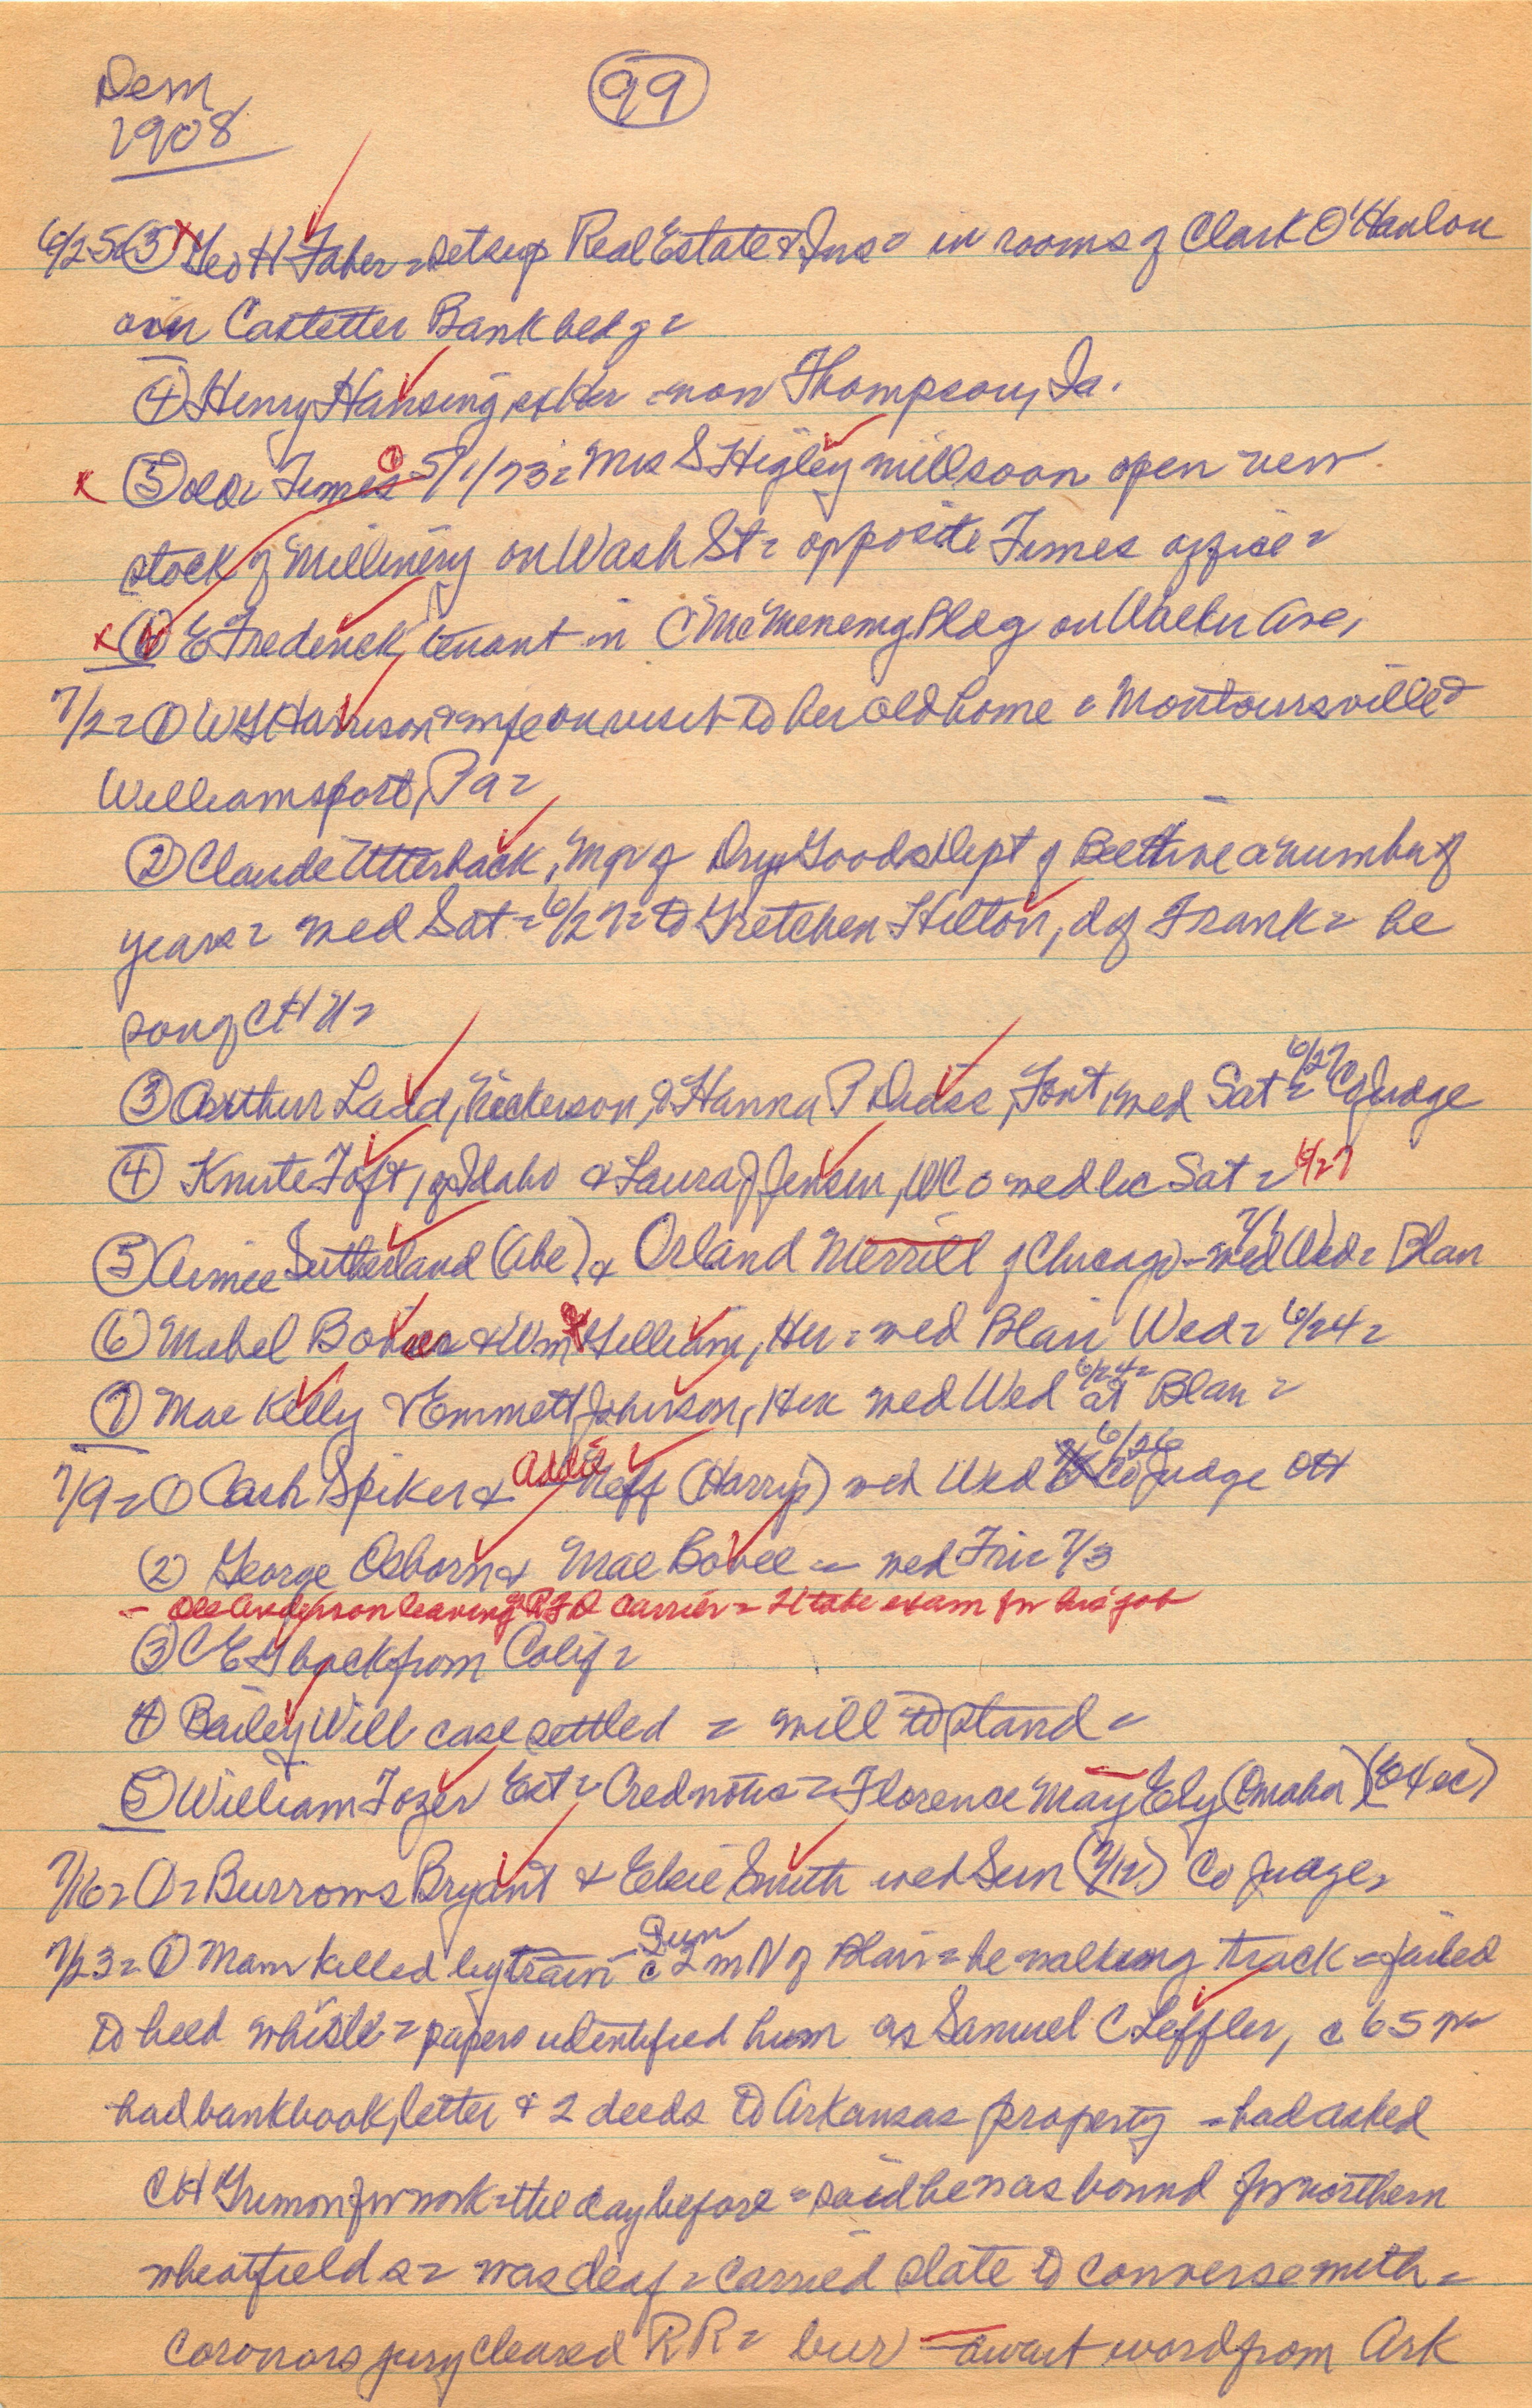 Dem
1908
99
6/25 = ③ Geo H Faber = sets up Real Estate & Ins = in rooms of Clark O'Hanlon
over Castetter Bank bldg =
④ Henry Hansing, = now Thompson, Ia.
x ⑤ Old Times ① 5/1/73 = Mrs S Higley will soon open new
stock of millinery on Wash St = opposite Times office =
x ⑥ E Frederick, tenant in C McMenemy Bldg on Walker Ave,
7/2 = ① WG Harrison & wife on visit to her old home = Montoursville &
Williamsport, Pa =
② Claude Utterback, Mgr of Dry Goods Dept of Beehive a number of
years = wed Sat = 6/27 = to Gretchen Hilton, d of Frank = he
son of CH U =
③ Arthur Ladd, Nickerson, & Hanna P , Font, wed Sat = 6/27 Co Judge
④ Knute Toft, of Idaho & Laura J Jensen, WCo wed lic Sat = 6/27
⑤ Aimee Sutherland (Abe) & Orland Merrill of Chicago - wed Wed = 7/1 Blair
⑥ Mabel & Wm Gilliam, Her = wed Blair Wed = 6/24 =
⑦ Mae Kelly & Emmett Johnson, Her wed Wed 6/24 = at Blair =
7/9 = ① Cash Spiker & Addie Neff (Harry's) wed Wed 6/26 Co Judge Ott
② George Osborn & Mae Bovee = wed Fri = 7/3
- Ole Anderson leaving as RFD carrier = 21 take exam for his job
③ CEG back from Calif =
④ Bailey Will case settled = will to stand =
⑤ William Tozer Est = Cred notice = Florence May Ely (Omaha) (Exec)
7/16 = ① = Burrows Bryant & Elsie Smith wed Sun (7/12) Co Judge =
7/23 = ① Man killed by train - Sun c 2 m N of Blair = he walking track = failed
to heed whistle = papers identified him as Samuel C Leffler, c 65 =
had bankbook, letter & 2 deeds to Arkansas property = had asked
CH Grimm for work = the day before = said he was bound for northern
wheatfields = was deaf = carried slate to converse with =
coronors jury cleared RR = bur - await word from Ark